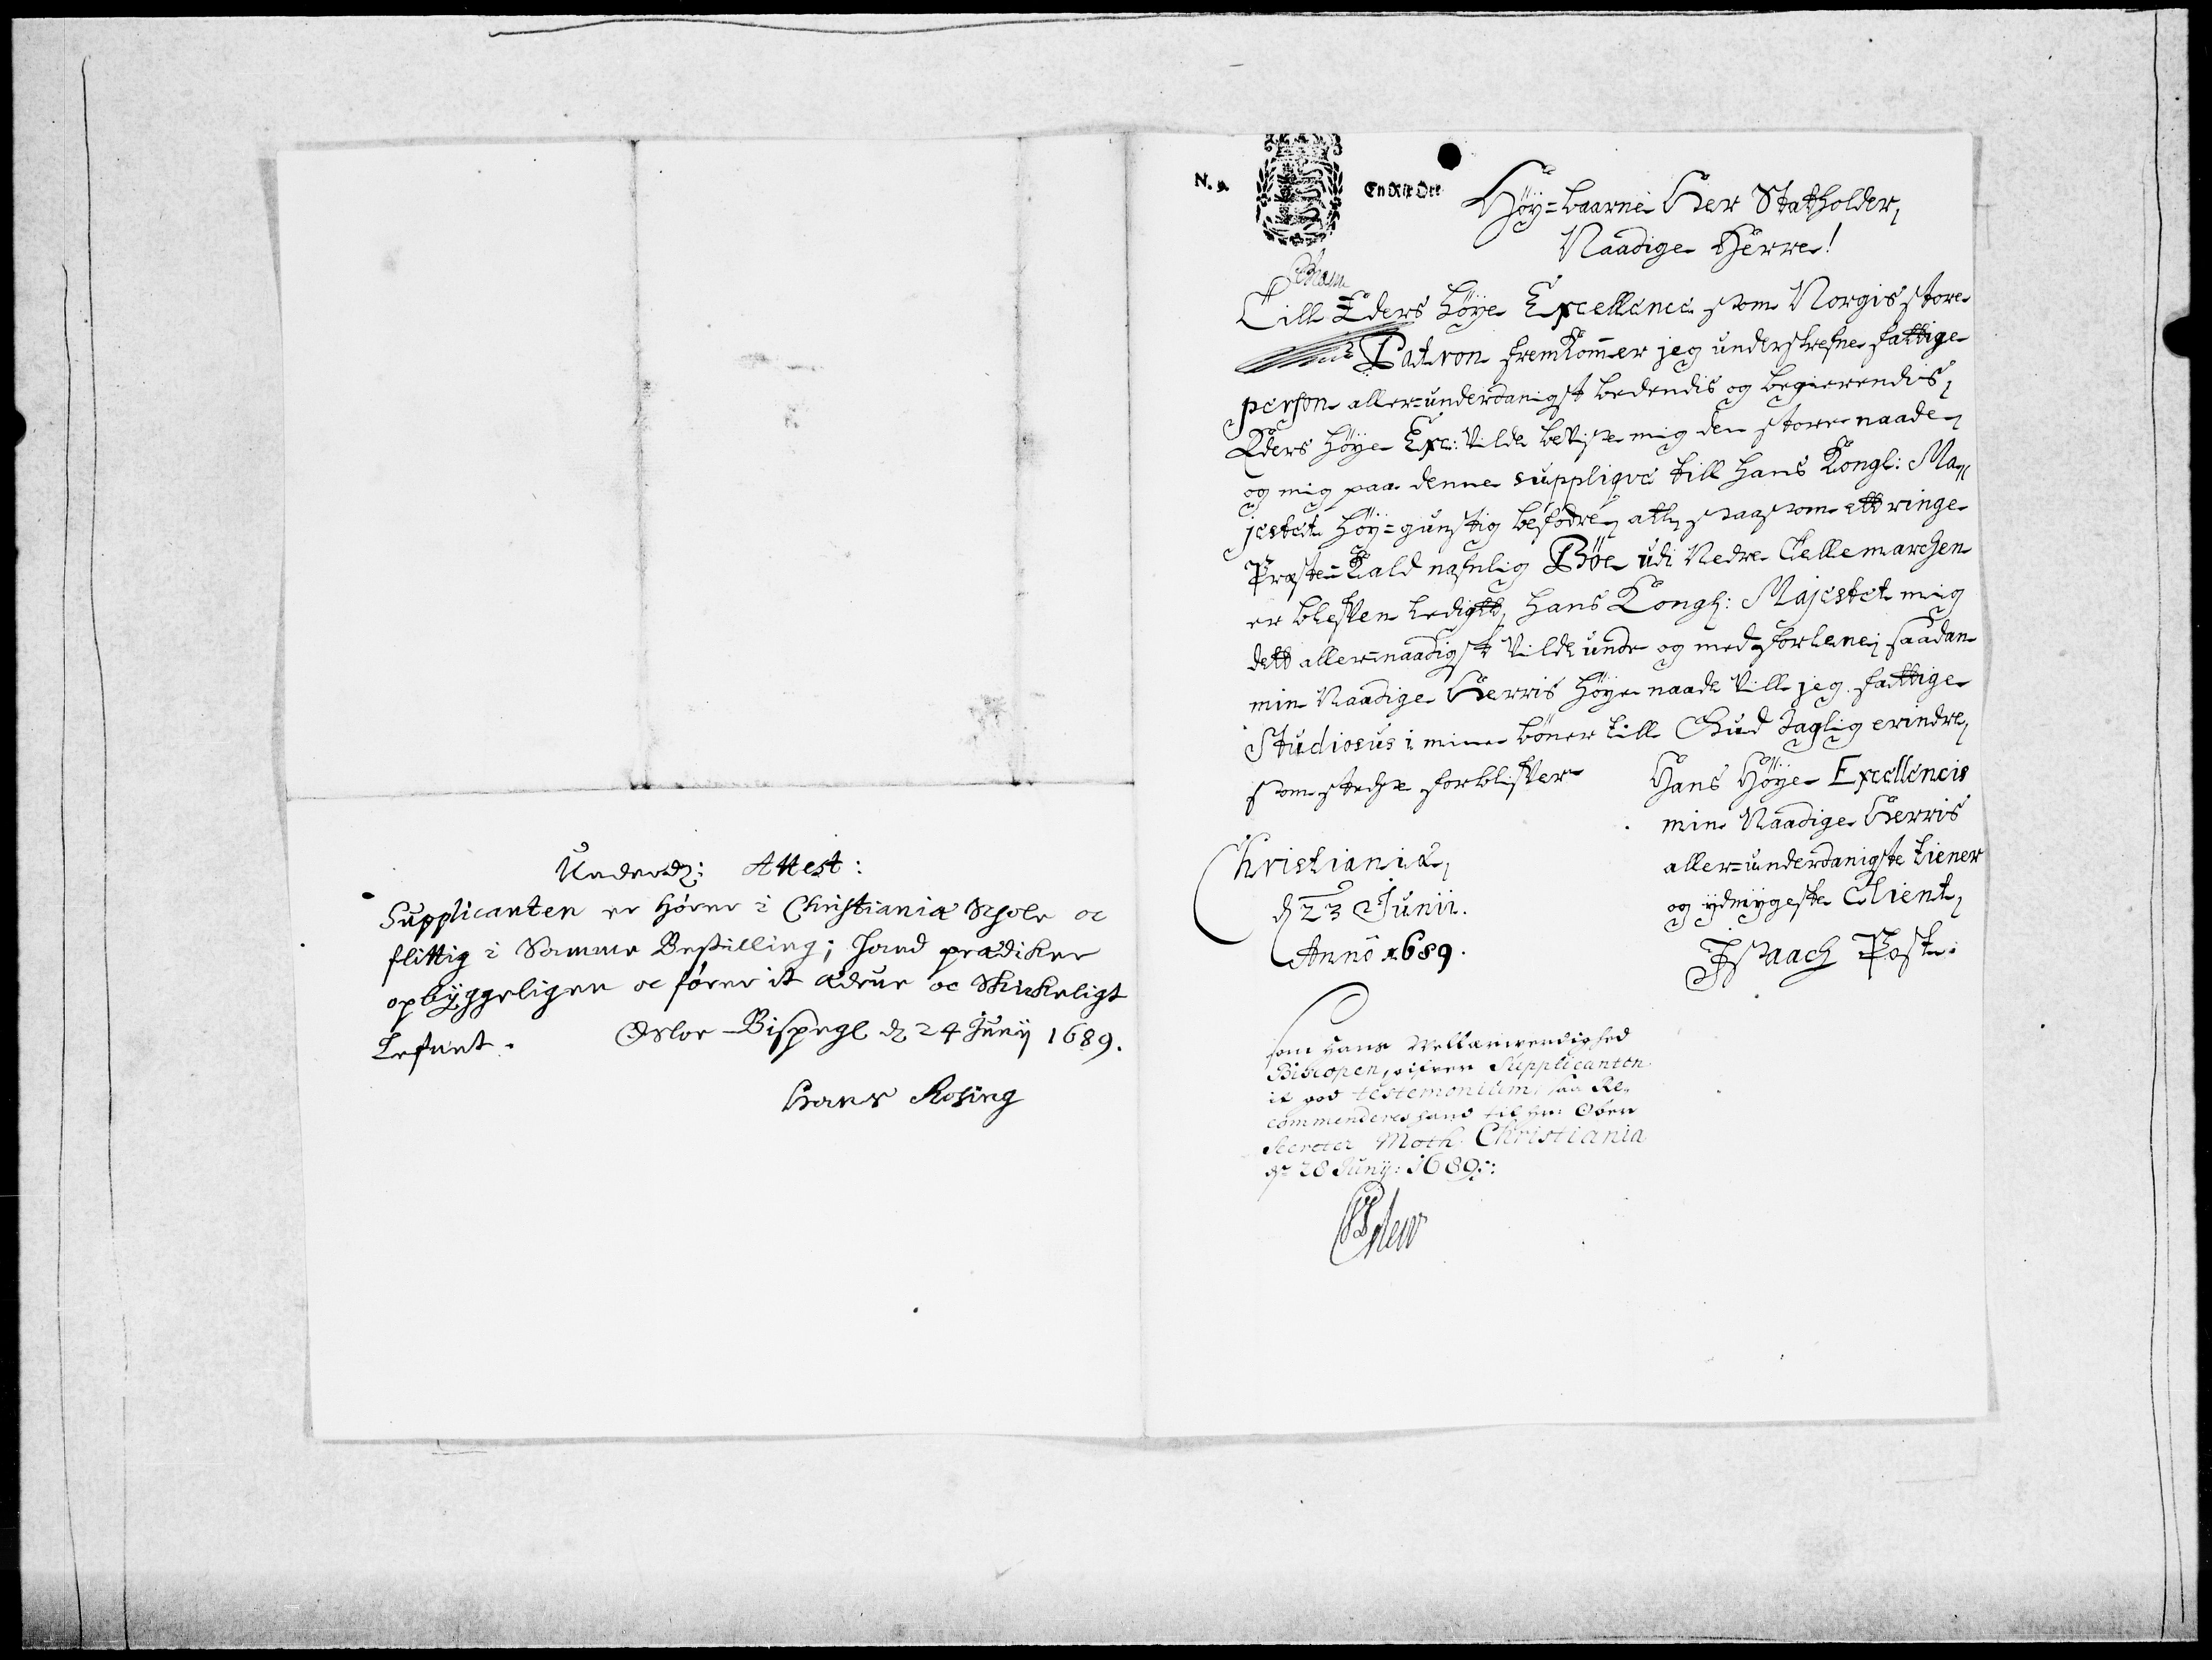 Underd: Attest:
Supplicanten er Hörer i Christianiæ Schole oc
flittig i Samme Bestilling; hand prædiker
opbÿggeligen oc förer it ædrue oc Skickeligt
Lefnet. Osloe Bispegl d 24 Junij 1689.
Hans Rosing
N. 9.
En Rix Ort
Höy=baarne Her Statholder,
Naadige Herre!
Till Eders Höye Excellence som Norgis store
Patron fremkommer jeg underskrefne fattige
person aller=underdanigst bedendis og begierendis,
Eders höye Exc: vilde bevise mig den store naade,
og mig paa denne supplique till hans Kongl: Ma,,
jestet höy=gunstig befodre, att, saasom ett ringe
Præste=Kald nafnlig Böe udi Nedre Tellemarchen
er blefven ledigtt, hans Kongl: Majestet mig
dett aller=naadigst vilde unde og med forlene, saadan
min Naadige Herris höye naade vill jeg fattige
Studiosus i mine böner till Gud daglig erindre,
som stedse forblifver
Hans Höye Excellencis
min Naadige Herris
aller=underdanigste tiener
og ydmygeste Client,
Isaach Post.
Christianiæ,
d 23 Junii.
Anno 1689.
Som hans Wellærverdighed
Biscopen, gifver Supplicanten
it god testemonium, saa Re,,
commenderes hand til hr: Ober
Secreter Moth. Christiania
d 28 Junij: 1689: